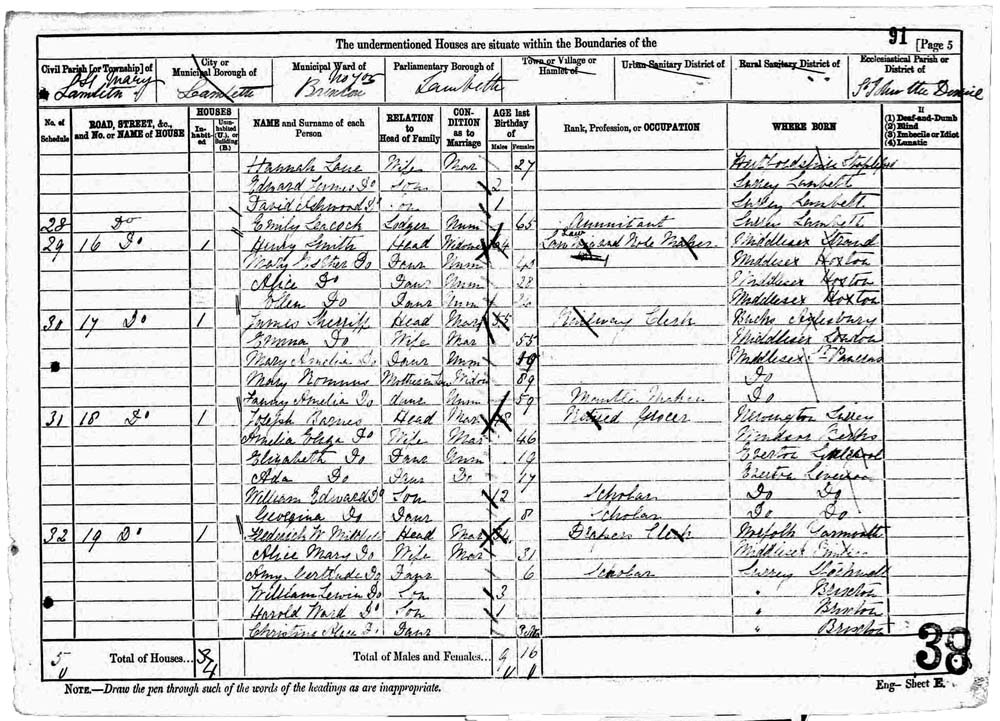 91 [Page 5
The undermentioned Houses are situate within the Boundaries of the
Civil Parish [or Township] of City or Municipal Borough of Municipal Ward of Parliamentary Borough of Town or Village or Hamlet of Urban Sanitary District of Rural Sanitary District of Ecclesiastical Parish or District of
St Mary Lambeth Lambeth Brixton Lambeth
No. of Schedule ROAD, STREET, &c., and No. or NAME of HOUSE HOUSES Inhabited Uninhabited (U.), or Building (B.) NAME and Surname of each Person RELATION to Head of Family CONDITION as to Marriage AGE last Birthday of Males Females Rank, Profession, or OCCUPATION WHERE BORN If (1) Deaf-and-Dumb (2) Blind (3) Imbecile or Idiot (4) Lunatic
Hannah Wife Mar 27 Hertfordshire
Edward Do Son 2 Surrey Lambeth
David 1 Surrey Lambeth
28 Do Emily Lodger Unm 65 Annuitant Surrey Lambeth
29 16 Do 1 Henry Smith Head Widower Middlesex Strand
Mary Esther Do Daur Unm Middlesex Hoxton
Alice Do Daur Unm 28 Middlesex Hoxton
Ellen Do Daur Unm Middlesex Hoxton
30 17 Do 1 James Sherriff Head Mar 55 Railway Clerk Bucks Aylesbury
Emma Do Wife Mar 55 Middlesex London
Mary Amelia Do Daur Unm 19 Middlesex St Pancras
Mary Mother in Law Widow 89 Do
Fanny Amelia Do daur Unm 59 Mantle Maker Do
31 18 Do 1 Joseph Barnes Head Mar Retired Grocer Newington Surrey
Amelia Eliza Do Wife Mar 46 Windsor Berks
Elizabeth Do Daur Unm 19 Everton Liverpool
Ada Do Daur Do 17 Everton Liverpool
William Edward Do Son 12 Scholar Do Do
Georgina Do Daur 8 Scholar Do Do
32 19 Do 1 Frederick W Head Mar 34 Drapers Clerk Norfolk Yarmouth
Alice Mary Do Wife Mar 31 Middlesex
Amy Gertrude Do Daur 6 Scholar Surrey Stockwell
William Lewin Do Son 3 " Brixton
Harold Ward Do Son 1 " Brixton
Christine Alice Do Daur " Brixton
5 Total of Houses... Total of Males and Females... 9 16
NOTE.—Draw the pen through such of the words of the headings as are inappropriate.
Eng— Sheet E.
38